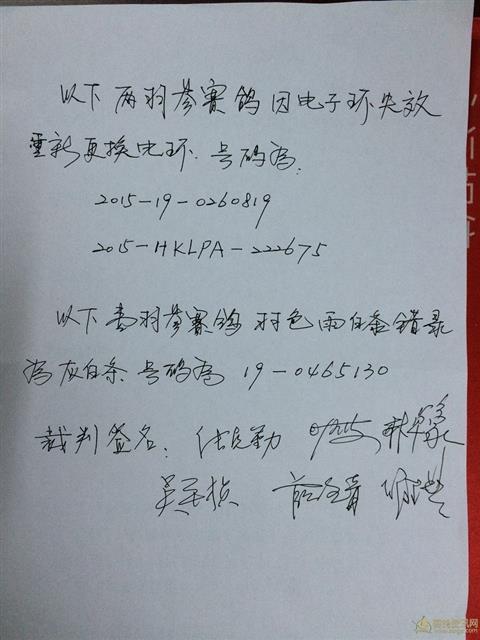 以下两羽参赛鸽因电子环失效
重新更换电环.号码为.
2015-19-0260819
2015-HKLPA-222675
以下壹羽参赛鸽羽色雨白条错录
为灰白条 号码为 19-0465130
裁判签名: